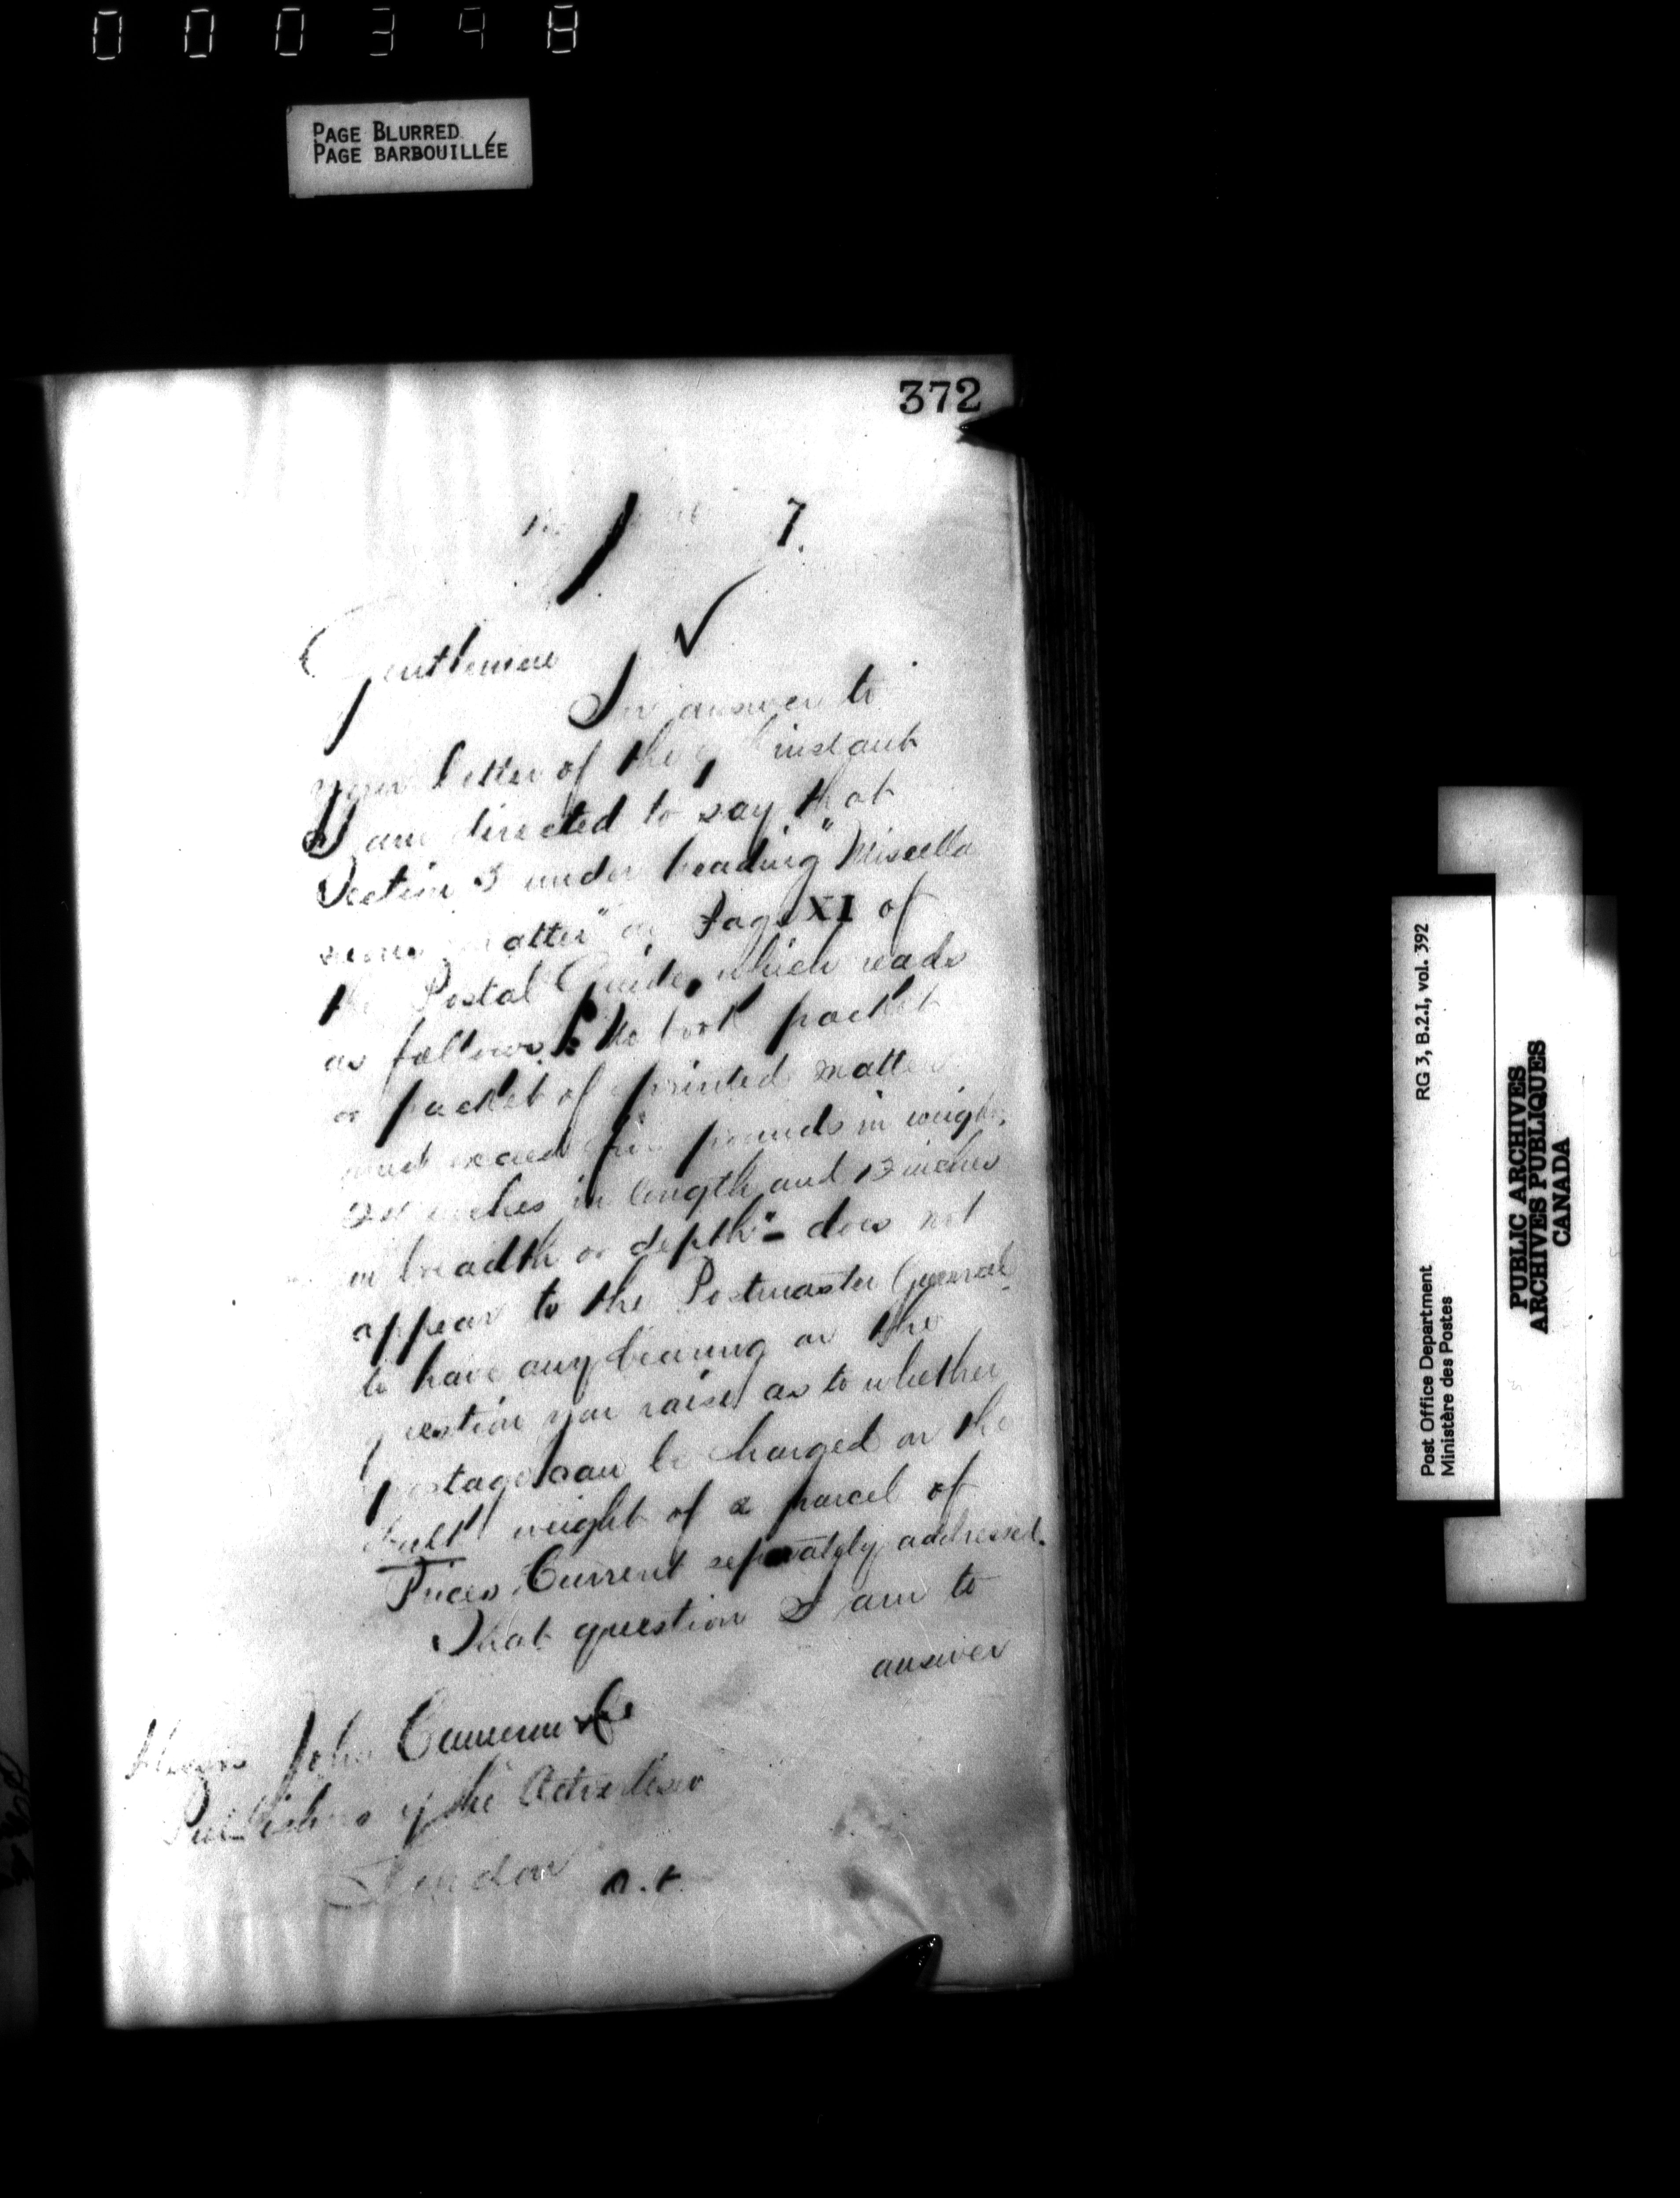 000348
PAGE BLURRED
PAGE BARBOUILLÉE
372
7.
Gentlemen
In answer to
your letter of the instant
I am directed to say that
Section 5 under heading "Miscella
matter" on Page XI of
the Postal Guide, which reads
as follows: No book packet
or packet of printed matter
must exceed five pounds in weight,
24 inches in length and 12 inches
in breadth or depth" - does not
appear to the Postmaster General
to have any bearing on the
question you raise as to whether
postage can be charged on the
bulk weight of a parcel of
Prices Current separately addressed.
That question I am to
answer
Messrs John Cameron & Co
Publishers of the Advertiser
London O.t.
Post Office Department
Ministère des Postes
RG 3, B.2.I, vol. 392
PUBLIC ARCHIVES
ARCHIVES PUBLIQUES
CANADA